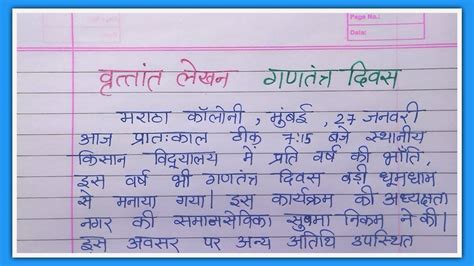 Page No.:
Date:
वृत्तांत लेखन गणतंत्र दिवस
मराठा कॉलोनी , मुंबई , 27 जनवरी
आज प्रातःकाल ठीक 7:15 बजे स्थानीय
किसान विद्यालय में प्रति वर्ष की भाँति,
इस वर्ष भी गणतंत्र दिवस बड़ी धूमधाम
से मनाया गया। इस कार्यक्रम की अध्यक्षता
नगर की समाजसेविका सुषमा निकम ने की।
इस अवसर पर अन्य अतिथि उपस्थित